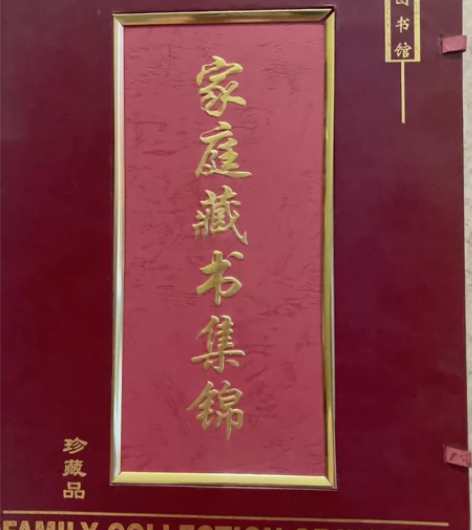 图书馆
家庭藏书集锦
珍藏品
FAMILY COLLECTION